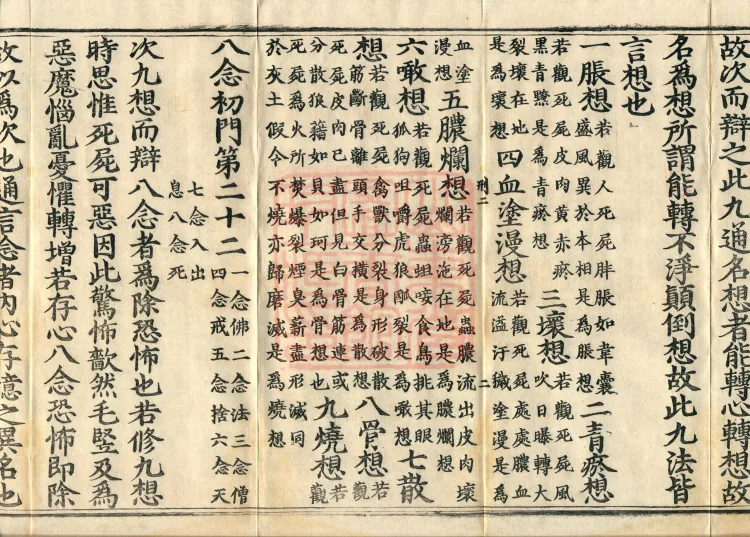 故次而辯之此九通名想者能轉心轉想故
名爲想所謂能轉不淨顛倒想故此九法皆
言想也
一脹想若觀人死屍胖脹如韋囊盛風異於本相是爲脹想二青瘀想
若觀死屍皮肉黃赤瘀黑青黤是爲青瘀想三壞想若觀死屍風吹日曝轉大
裂壞在地是爲壞想四血塗漫想若觀死屍處處膿血流溢汙穢塗漫是爲
刑二
二
血塗漫想五膿爛想若觀死屍蟲膿流出皮肉壞爛滂沲在地是爲膿爛想
六噉想若觀死屍蟲蛆唼食鳥挑其眼狐狗咀嚼虎狼裂是爲噉想七散
想若觀死屍禽獸分裂身形破散筋斷骨離頭手交橫是爲散想八骨想若觀
死屍皮肉已盡但見白骨筋連或分散狼籍如貝如珂是爲骨想也九燒想若觀
死屍爲火所焚爆裂煙臭薪盡形滅同於灰土假令不燒亦歸磨滅是爲燒想
八念初門第二十二一念佛二念法三念僧四念戒五念捨六念天
七念入出息八念死
次九想而辯八念者爲除恐怖也若修九想
時思惟死屍可惡因此驚怖歘然毛竪及爲
惡魔惱亂憂懼轉增若存心八念恐怖即除
故以爲次也通言念者內心存憶之異名也